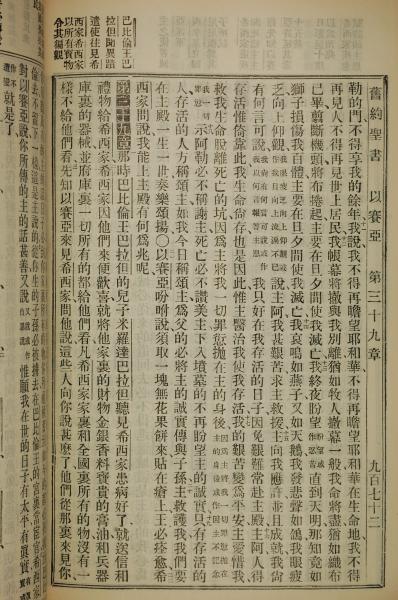 舊約聖書 以賽亞 第三十九章 九百七十二
勒的門不得享我的餘年我說我不得再瞻望耶和華不得再瞻望耶和華在生命地我不得
再見人不得再見世上居民我帳幕將撤與我別離猶如牧人撤幕一般我命將盡猶如織布
已畢剪斷機頭將布捲起主要在旦夕間使我滅亡我終夜盼望盼望或作忍苦直到天明那知竟如
獅子損傷我百體主要在旦夕間使我滅亡我哀鳴如燕子又如天鵝我發悲聲如鴿我眼疲
乏向上仰觀我眼疲乏向上仰觀或作我目向上流淚不已說主阿我甚艱苦求主救援主向我應許並且成就我尚
有何言可說我尚有何言可說或作我以何言報答主恩我只好在我存活的日子因免艱難常赴主殿主阿人得
存活惟倚靠此我生命尚存也是因此惟主醫治我使我存活我的艱苦變爲平安主愛惜我
救我生命脫離死亡的坑因爲主將我一切罪愆抛在主的身後
我一切罪愆示阿勒必不稱謝主死亡必不讚美主下入墳墓的不再盼望主的誠實只有存活的
人存活的人方稱頌主如我今日稱頌主爲父的必將主的誠實傳與子孫主救護我我們要
在主殿一生一世奏樂頌揚○以賽亞吩咐說須取一塊無花果餅來貼在瘡上王必痊愈希
西家問說我能上主殿有何爲兆呢
巴比倫王巴
拉但聞異蹟
遣使往見希
西家希西家
以所有寶物
令其徧觀
第三十九章那時巴比倫王巴拉但的兒子米羅達巴拉但聽見希西家患病好了就送信和
禮物給希西家希西家因他們來便歡喜就將他家裏的財物金銀香料寶貴的膏油和兵器
庫裏的器械並府庫裏一切所有的都給他們看凡希西家家裏和全國裏所有的物沒有一
樣不給他們看先知以賽亞來見希西家問他說這些人向你說甚麽了他們從那裏來見你
倫去不留下一樣這是主說的從你生的子孫必被擄去在巴比倫王的宮裏當宦官希西家
對以賽亞說你所傳的主的話甚善又說惟願我在世的日子有太平有真實
就是了